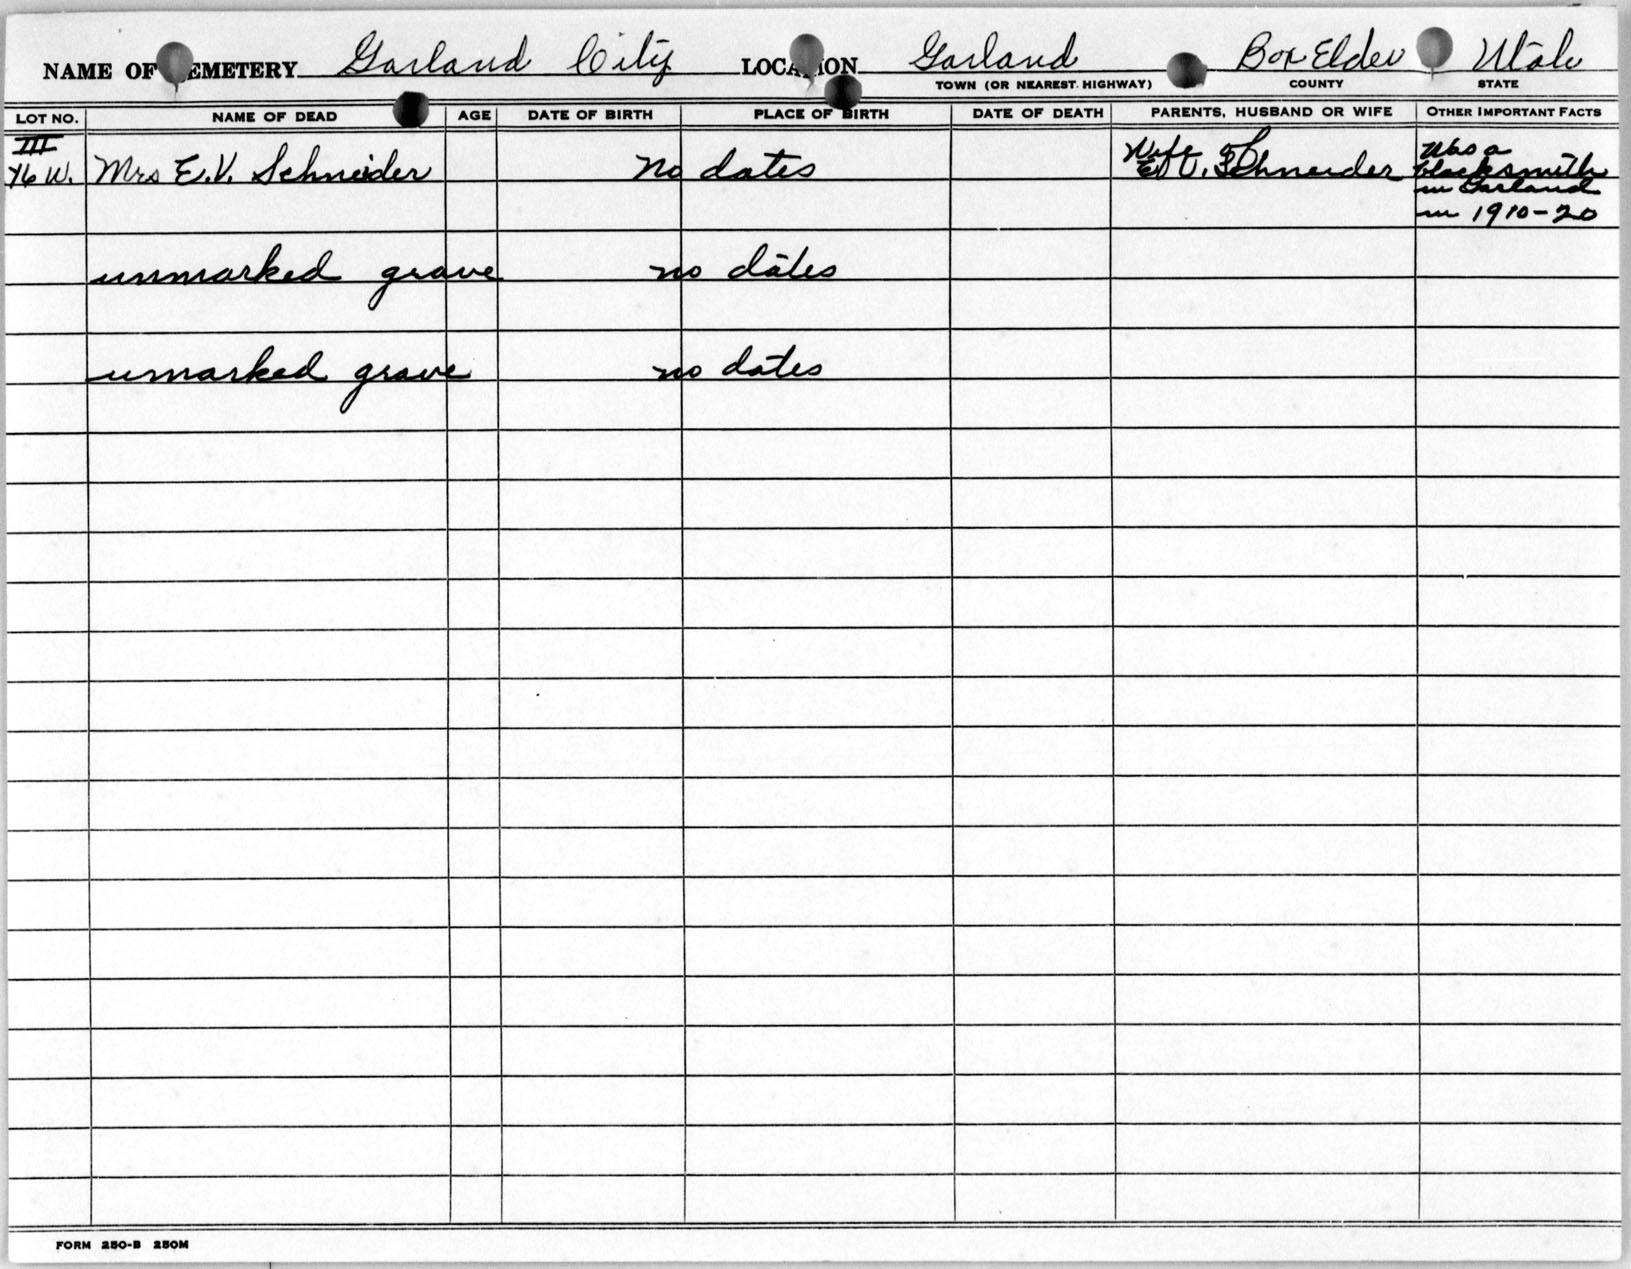 NAME OF CEMETERY Garland City LOCATION Garland Box Elder Utah
TOWN (OR NEAREST HIGHWAY) COUNTY STATE
LOT NO. NAME OF DEAD AGE DATE OF BIRTH PLACE OF BIRTH DATE OF DEATH PARENTS, HUSBAND OR WIFE OTHER IMPORTANT FACTS
III Wife of Was a
76 W. Mrs E.V. Schneider No dates E.V. Schneider blacksmith
in Garland
in 1910-20
unmarked grave no dates
unmarked grave no dates
FORM 250-B 250M